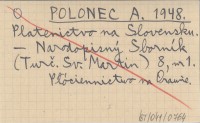 O POLONEC A. 1948.
Platenictvo na Slovensku.
– Narodopisný Sborník
(Turč. Sv. Martin) 8, n. 1.
Płóciennictwo na
61/04/0764